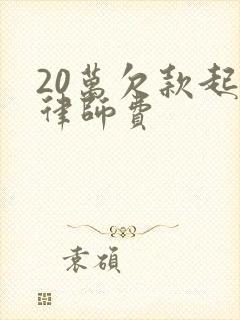 20萬欠款起
律師費
袁碩